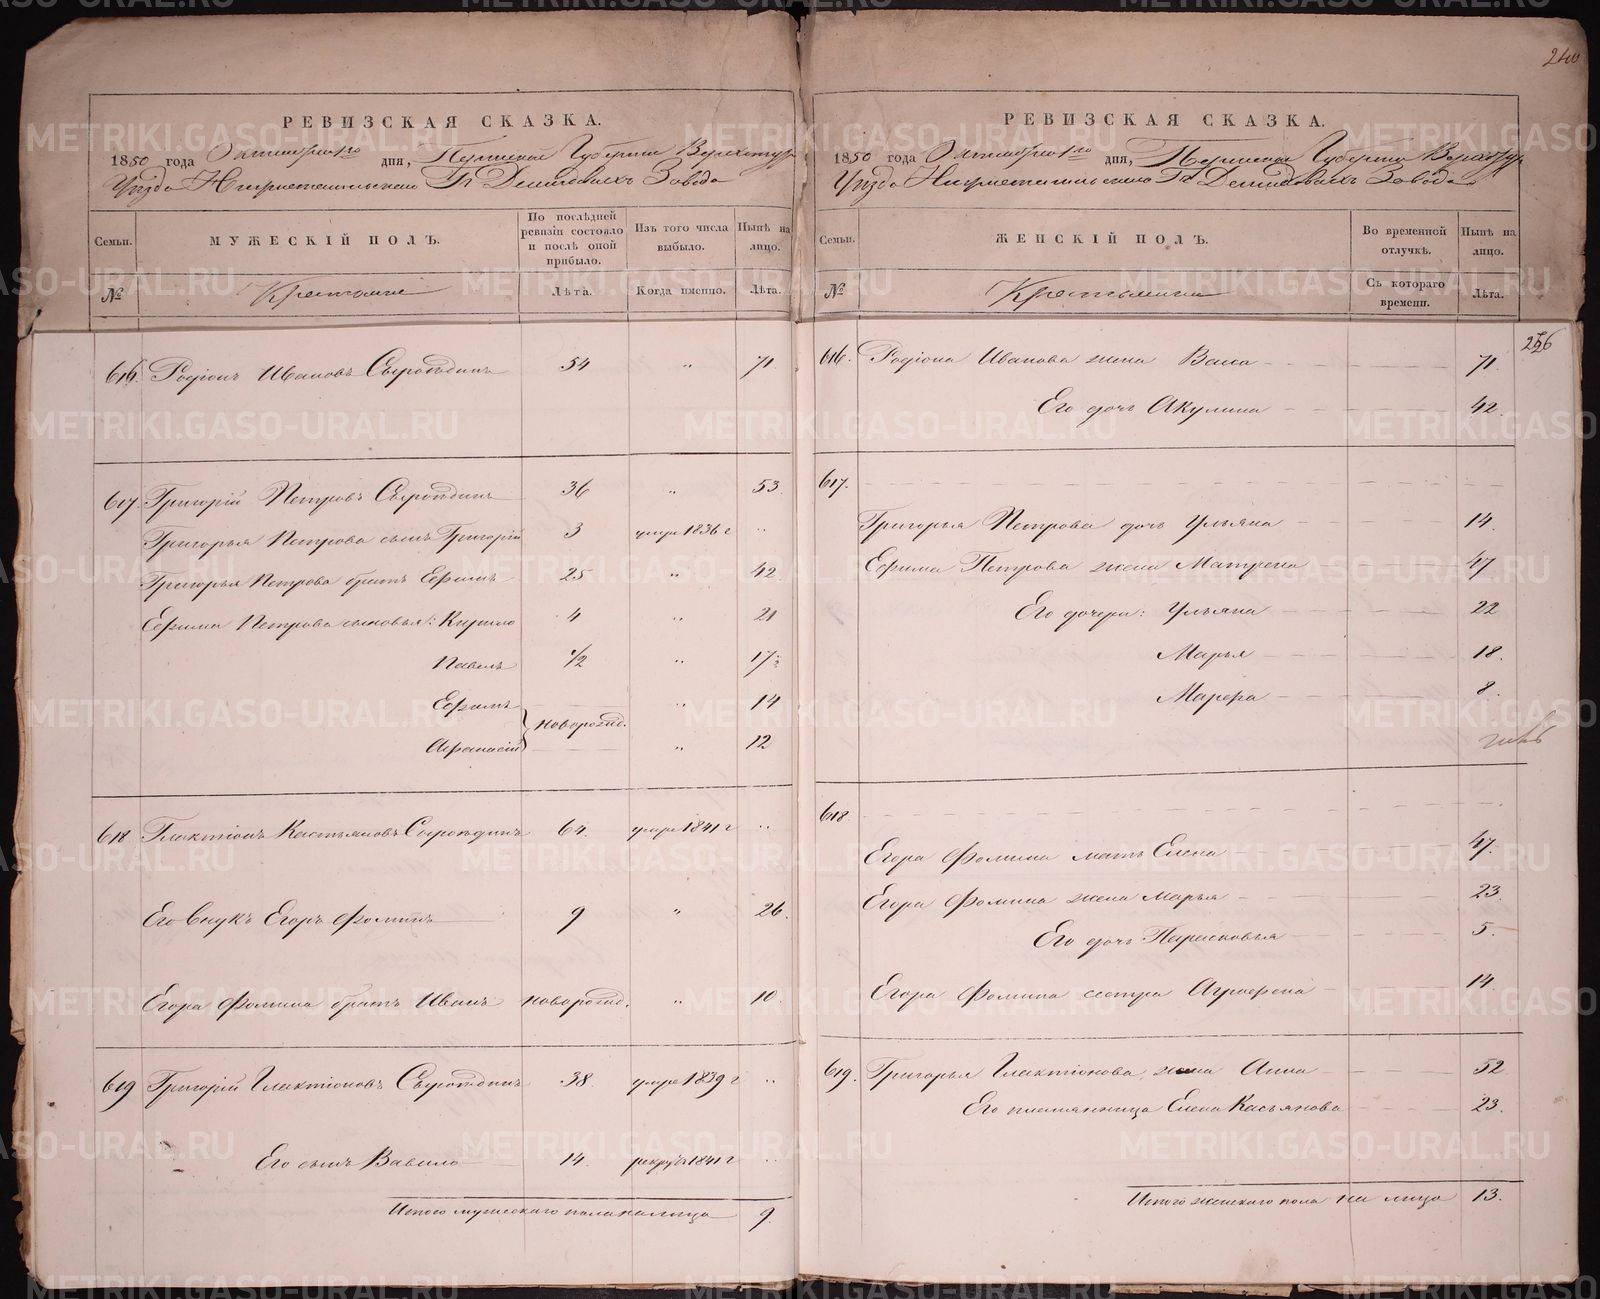 240
РЕВИЗСКАЯ СКАЗКА.
1850 года Октября 1го дня, Пермской Губернии Верхотур
Уезда Нижнетагильского Гг Демидовыхъ Завода
Семьи.
МУЖЕСКІЙ ПОЛЪ.
По послѣдней ревизіи состояло и послѣ оной прибыло.
Изъ того числа выбыло.
Нынѣ на лицо.
№
Крестьяне
Лѣта.
Когда именно.
Лѣта.
616. Родіонъ Ивановъ 54 " 71.
617. Григорій Петровъ 36 " 53.
Григорья Петрова сынъ Григорій 3 умре 1836 г "
Григорья Петрова братъ Ефимъ 25 " 42.
Ефима Петрова сыновья: Кирило 4 " 21
Павелъ 1/2 " 17 1/2
Ефимъ новорожд. " 14
Афанасій " 12
618. Галактіонъ Кастьяновъ 64. умре 1841 г "
Его внукъ Егоръ Фоминъ 9 " 26.
Егора Фомина братъ Иванъ новорожд. " 10.
619 Григорій Галактіоновъ 38. умре 1839 г "
Его сынъ Вавило 14. рекрутъ 1841 г "
Итого мужескаго пола на лицо 9.
РЕВИЗСКАЯ СКАЗКА.
1850 года Октября 1го дня, Пермской Губернии Верхотур
Уезда Нижнетагильского Гг Демидовыхъ Завода
Семьи.
ЖЕНСКІЙ ПОЛЪ.
Во временной отлучкѣ.
Нынѣ на лицо.
№
Крестьянки
Съ котораго времени.
Лѣта.
256
616. Родіона Иванова жена Васа 71.
Его дочь Акулина 42.
617.
Григорья Петрова дочь Ульяна 14.
Ефима Петрова жена Матрена 47
Его дочери: Ульяна 22
Марья 18.
Марфа 8.
618.
Егора Фомина мать Елена 47.
Егора Фомина жена Марья 23.
Его дочь Парасковья 5.
Егора Фомина сестра Аграфена 14.
619. Григорья Галактіонова жена Анна 52
Его племянница Елена Касьянова 23.
Итого женскаго пола на лицо 13.
METRIKI.GASO-URAL.RU